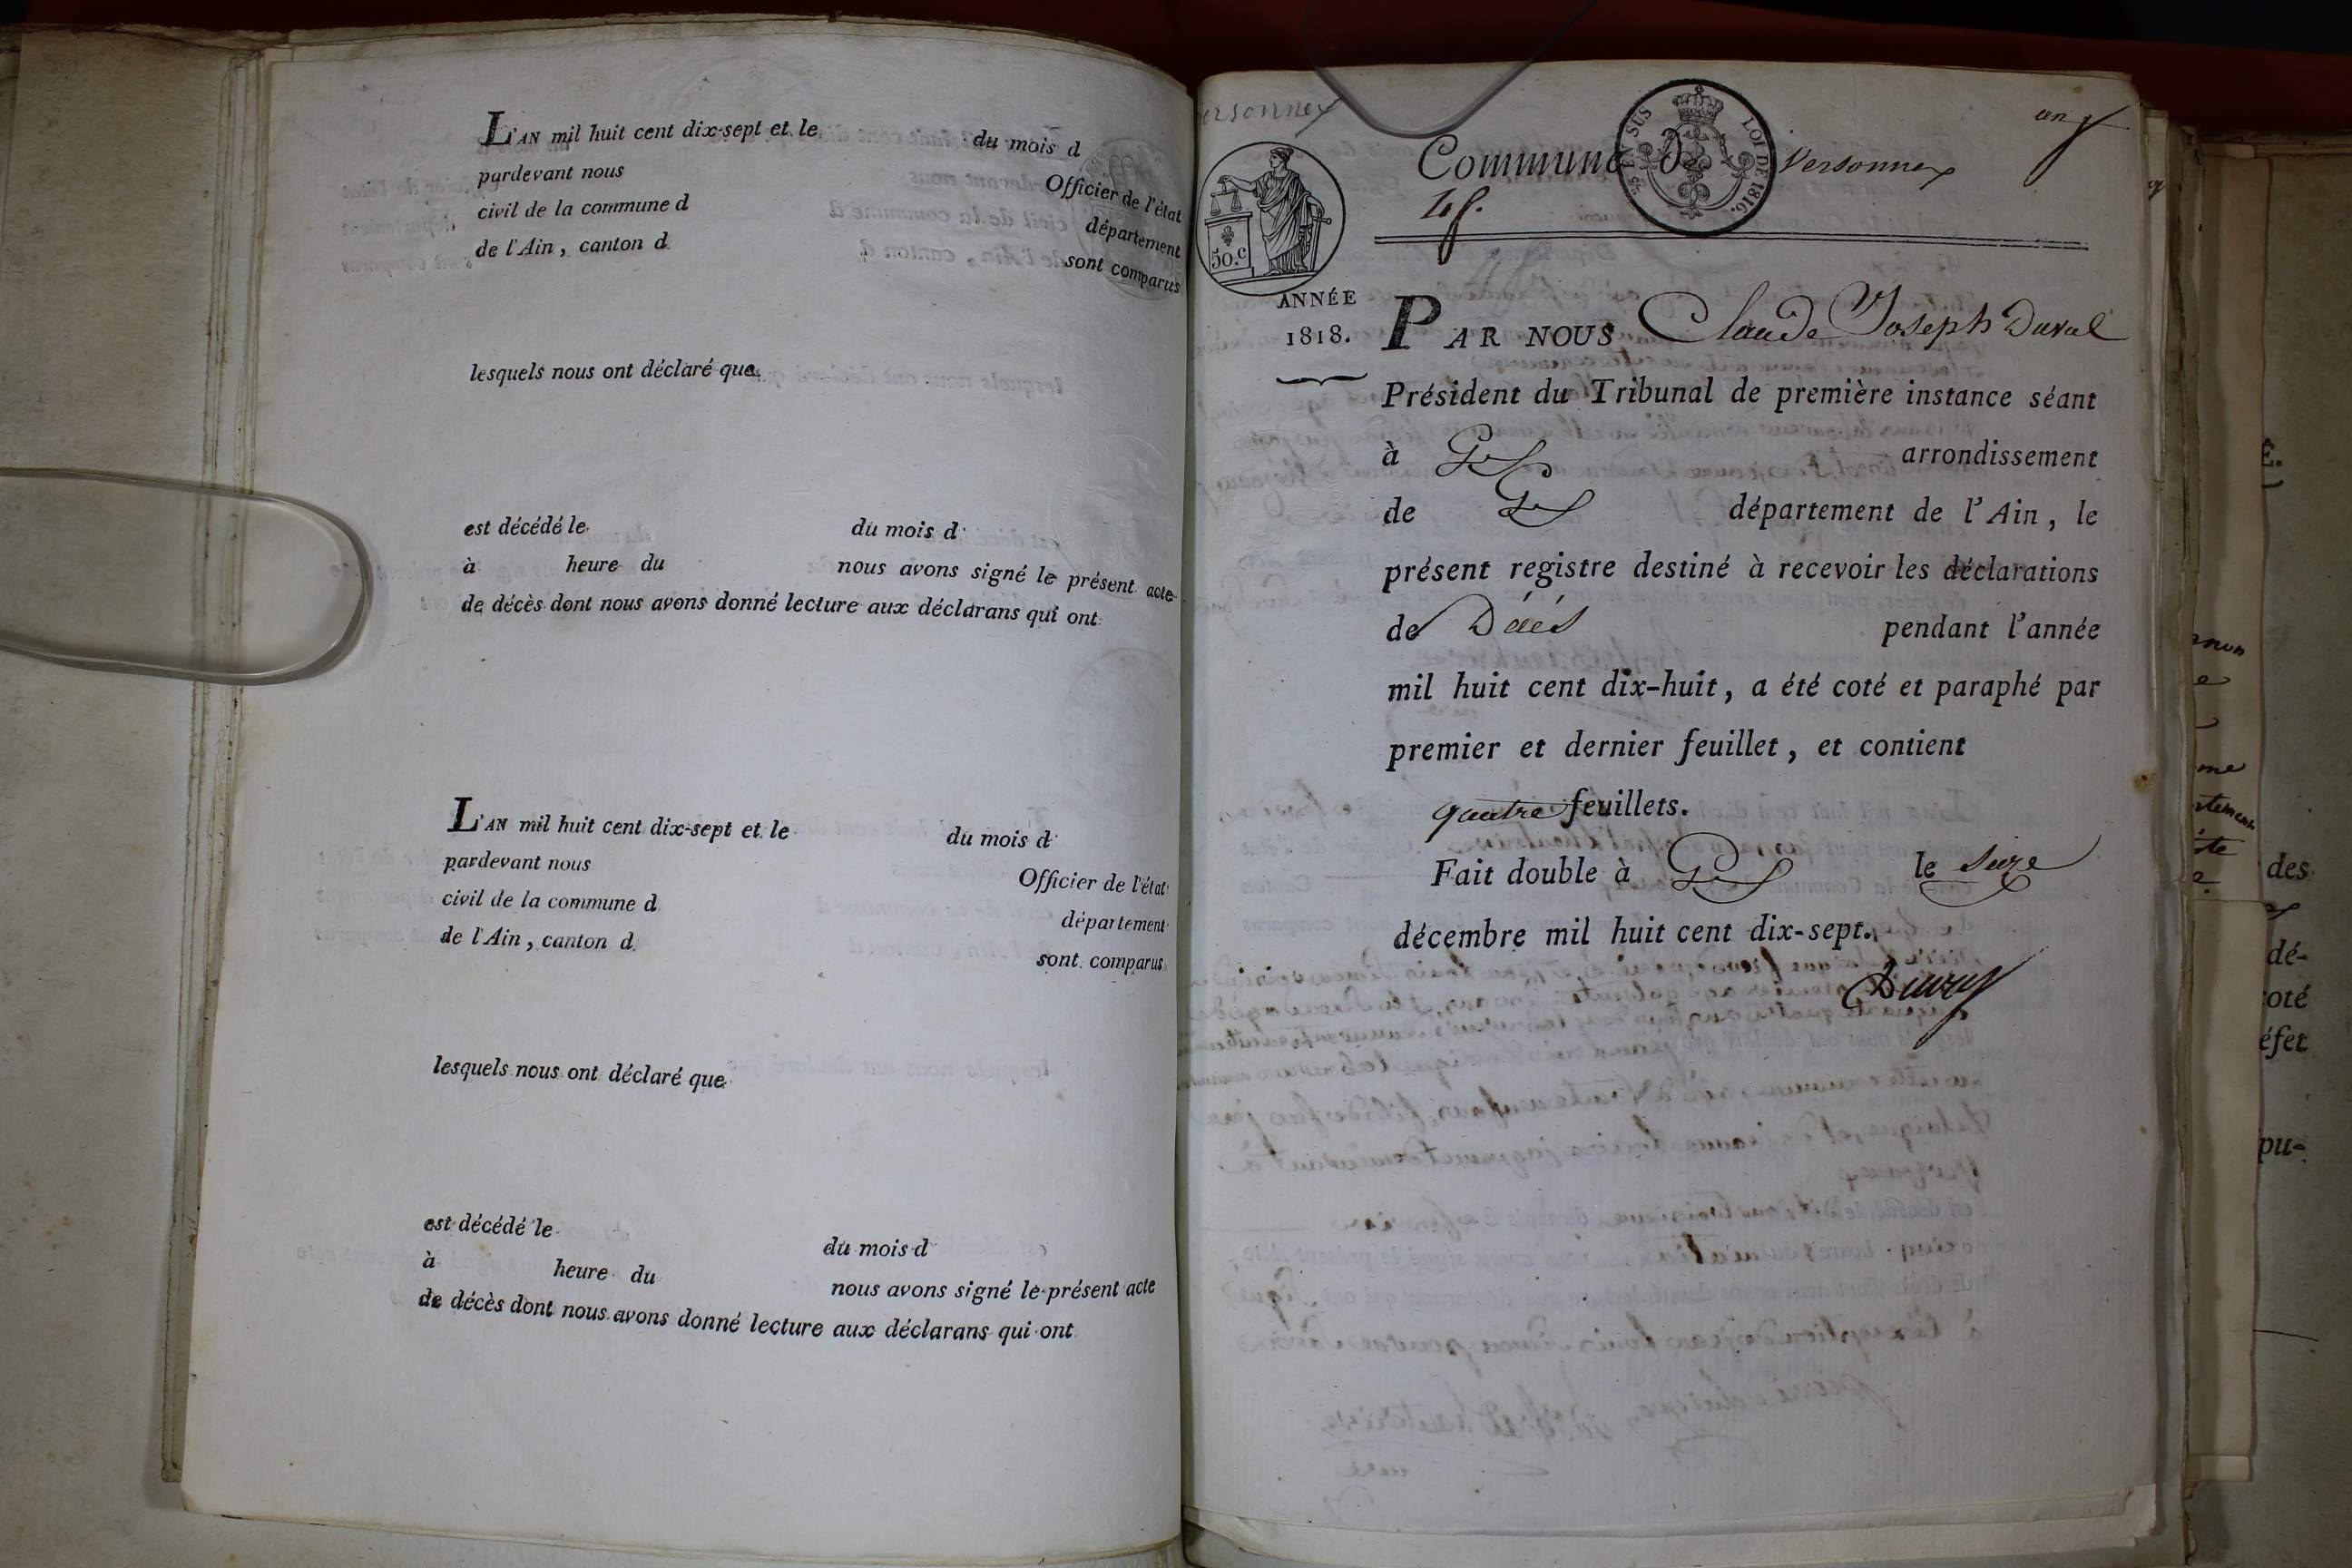 L'AN mil huit cent dix-sept et le du mois d
pardevant nous Officier de l'état
civil de la commune d département
de l'Ain, canton d sont comparus
lesquels nous ont déclaré que
est décédé le du mois d
à heure du nous avons signé le présent acte
de décès dont nous avons donné lecture aux déclarans qui ont
L'AN mil huit cent dix-sept et le du mois d
pardevant nous Officier de l'état
civil de la commune d département
de l'Ain, canton d sont comparus
lesquels nous ont déclaré que
est décédé le du mois d
à heure du nous avons signé le présent acte
de décès dont nous avons donné lecture aux déclarans qui ont
Commune de Versonnex
EN SUS LOI DE 1816.
4 f.
50.c
ANNÉE
1818.
PAR NOUS Claude Joseph Duval
Président du Tribunal de première instance séant
à Gex arrondissement
de Gex département de l'Ain, le
présent registre destiné à recevoir les déclarations
de Décés pendant l'année
mil huit cent dix-huit, a été coté et paraphé par
premier et dernier feuillet, et contient
quatre feuillets.
Fait double à Gex le seize
décembre mil huit cent dix-sept.
des
dé-
coté
éfet
pu-